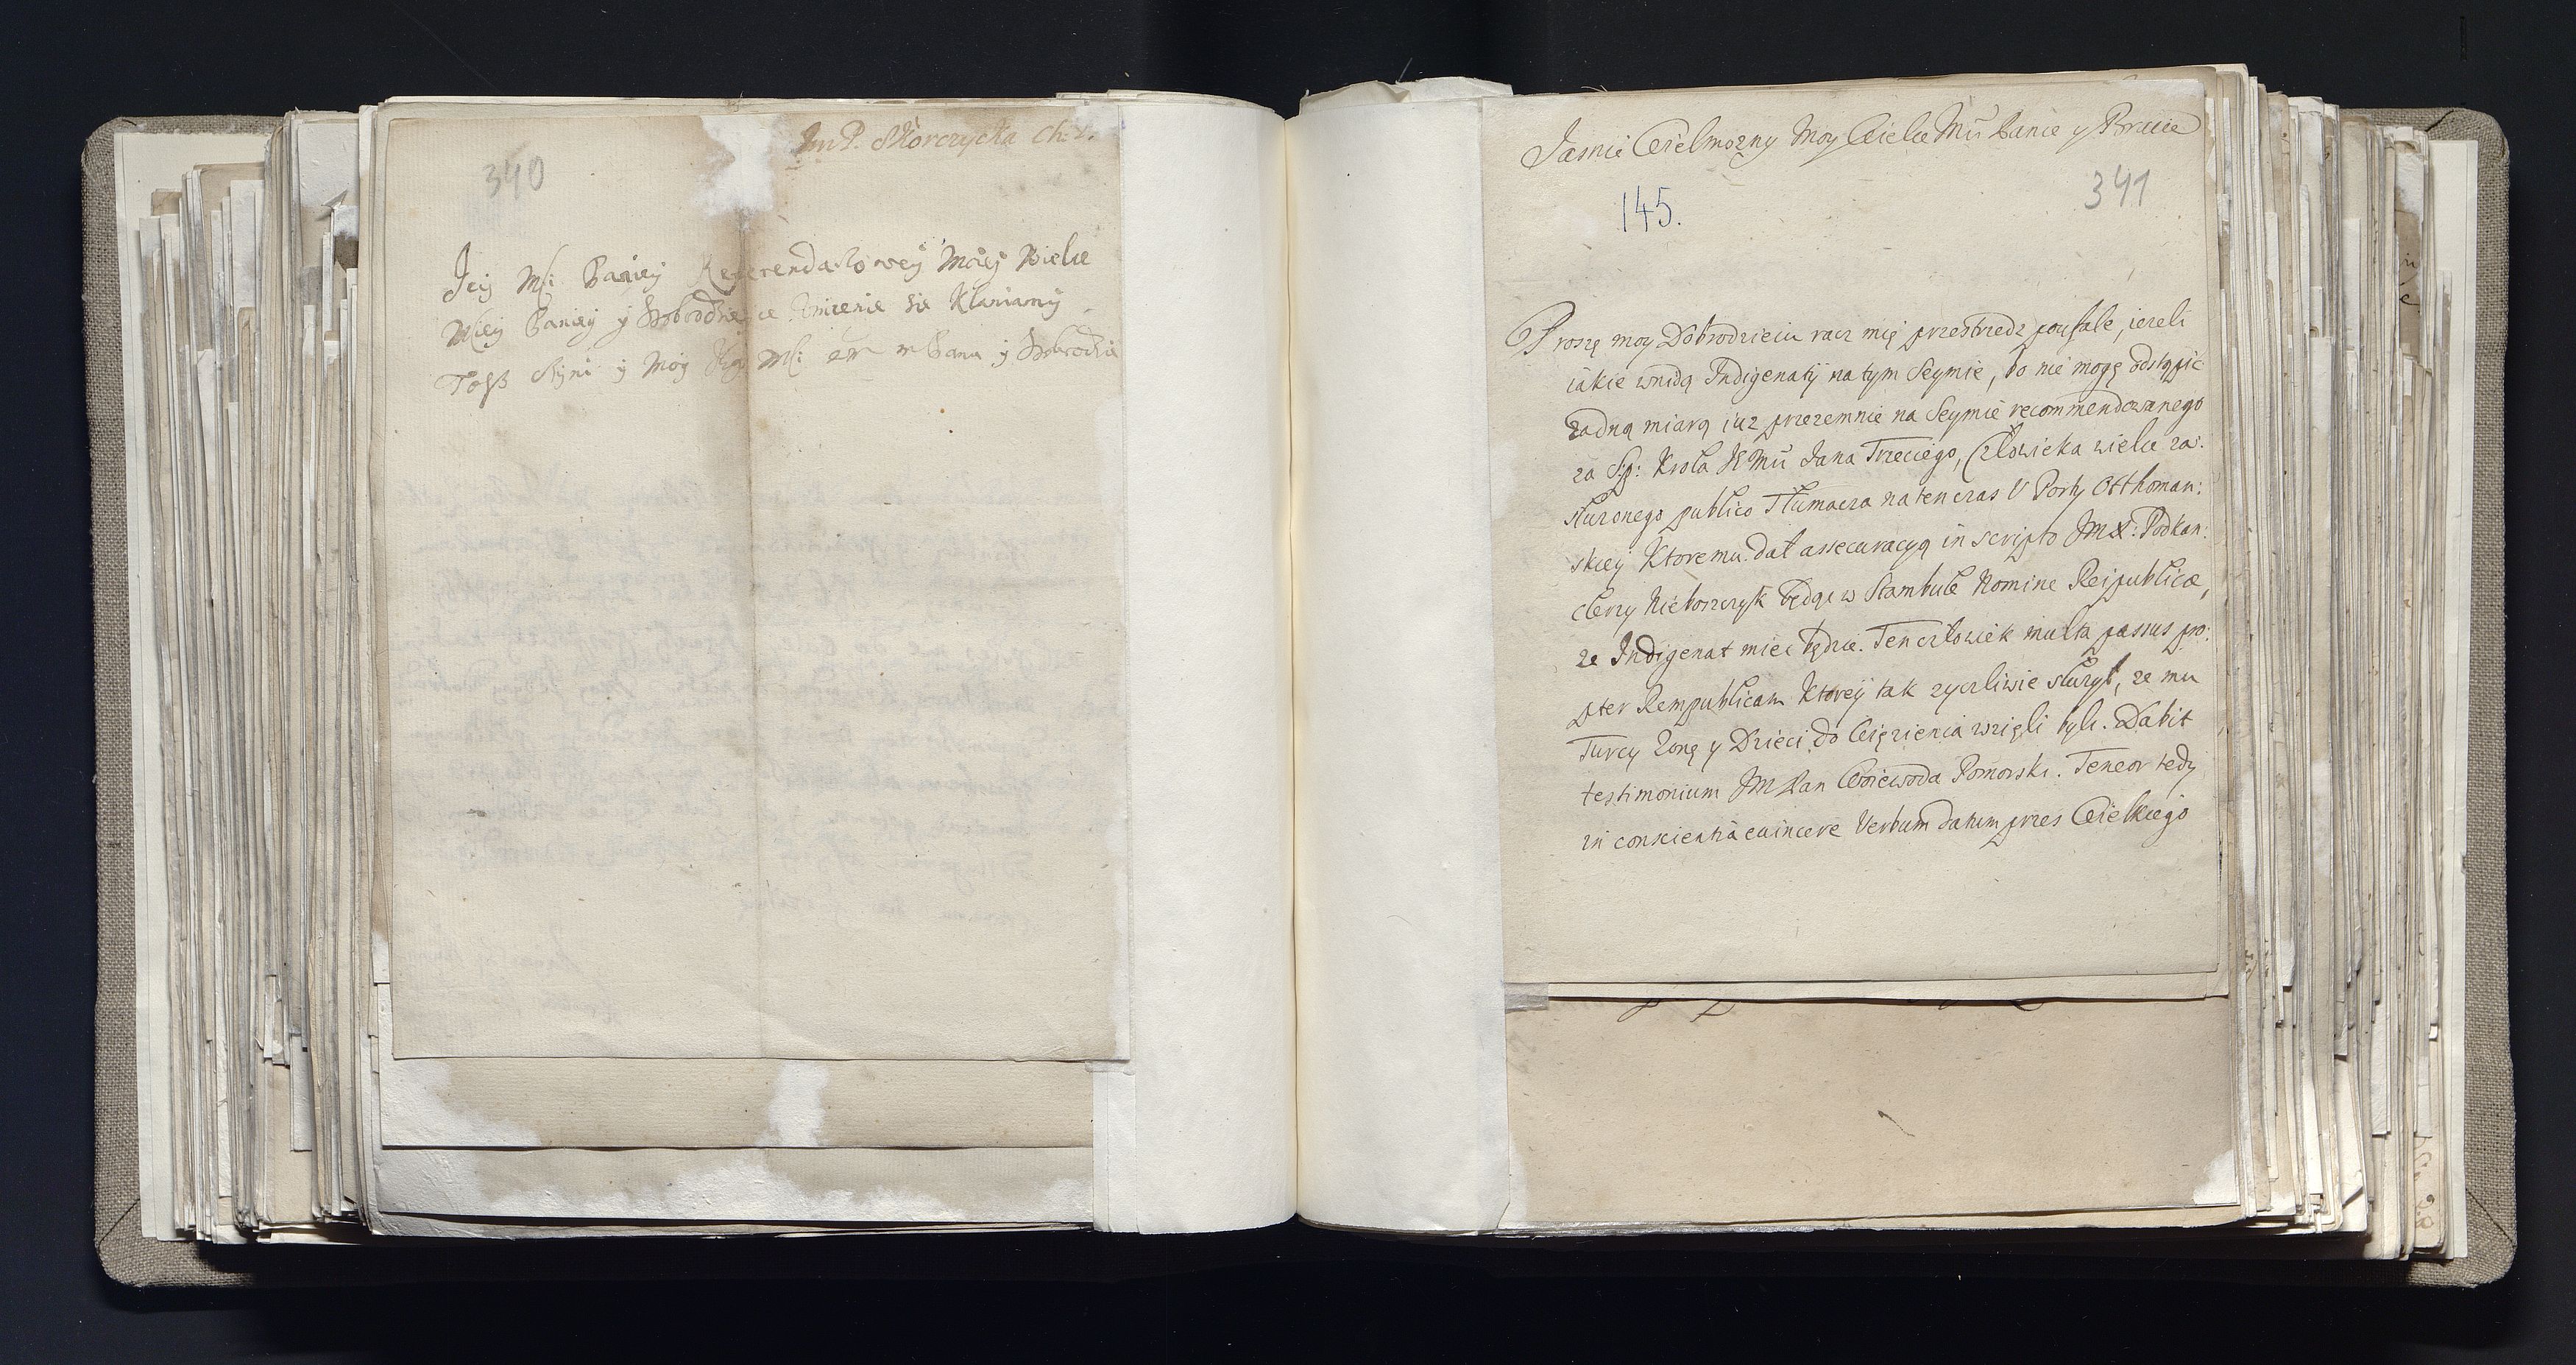 340
Jm P. Skorczycka Ch: L.
Jey Mći Paniey Referendarzowey Moiey Wielce
Mćiey Paniey y Dobrodzieyce Vnizenie się Kłaniamy
Toż czyni y Moy Mći w Pana y Dobrodzie
Jasnie Wielmozny Moy Wielce Mśći Panie y Bracie
145.
341
Proszę moy Dobrodzieiu racz mię przestrzedz poufale, iezeli
iakie wnidą Indigenaty na tym Seymie, bo nie mogę odstąpić
zadną miarą iuz przezemnie na Seymie recommendowanego
za Sp: Krola JEMći Jana Trzeciego, Człowieka wielce za-
słuzonego publico Tłumacza na ten czas V Porty Otthoman:
skiey Ktoremu dał assecuracyą in scripto JmX: Podkan:
clerzy Nieboszczyk będąc w Stambule Nomine Reipublicæ,
ze Indigenat miec będzie. Ten człowiek multa passus pro:
pter Rempublicam Ktorey tak zyczliwie słuzył, ze mu
Turcy Zonę y Dzieci do Więzienia wzięli byli. Dabit
testimonium Jm Pan Woiewoda Pomorski. Teneor tedy
in conscientia euincere Verbum datum przes Wielkiego